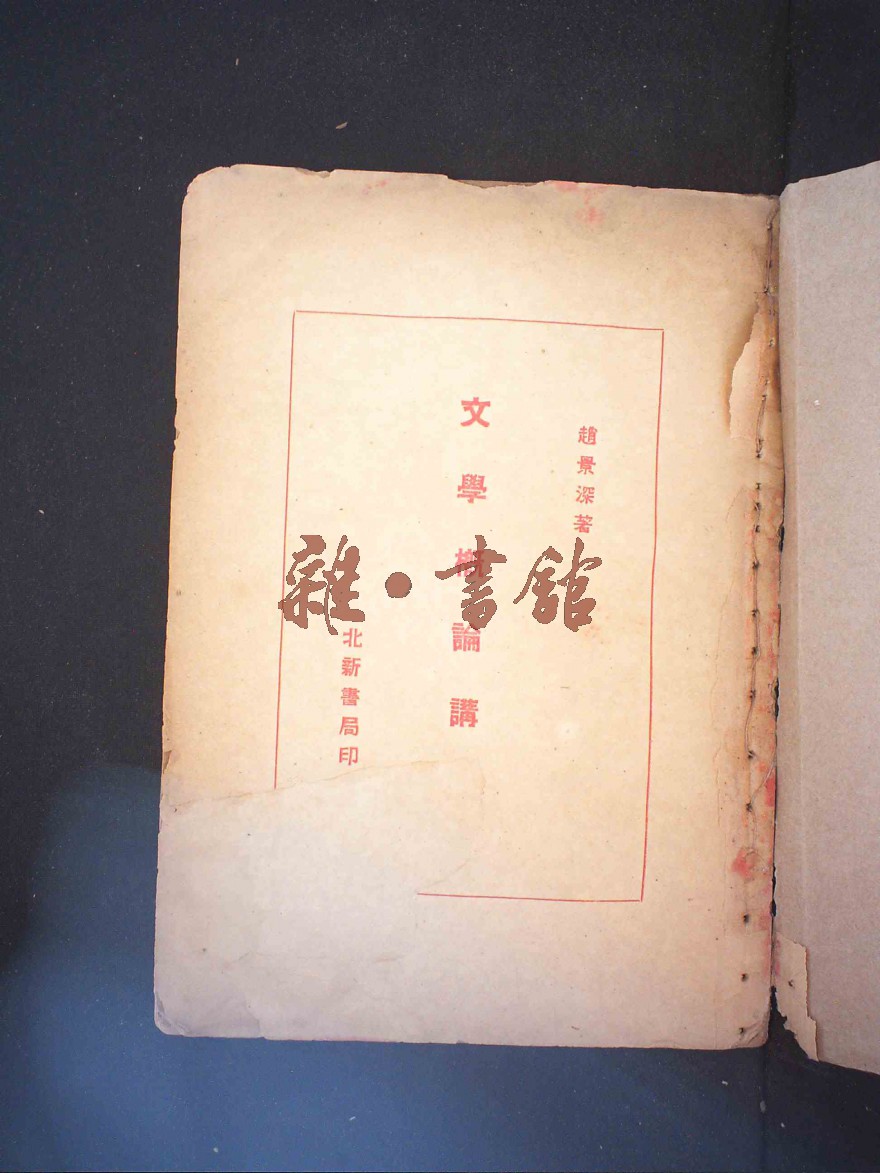 趙景深著
文學概論講
北新書局印
雜·書館